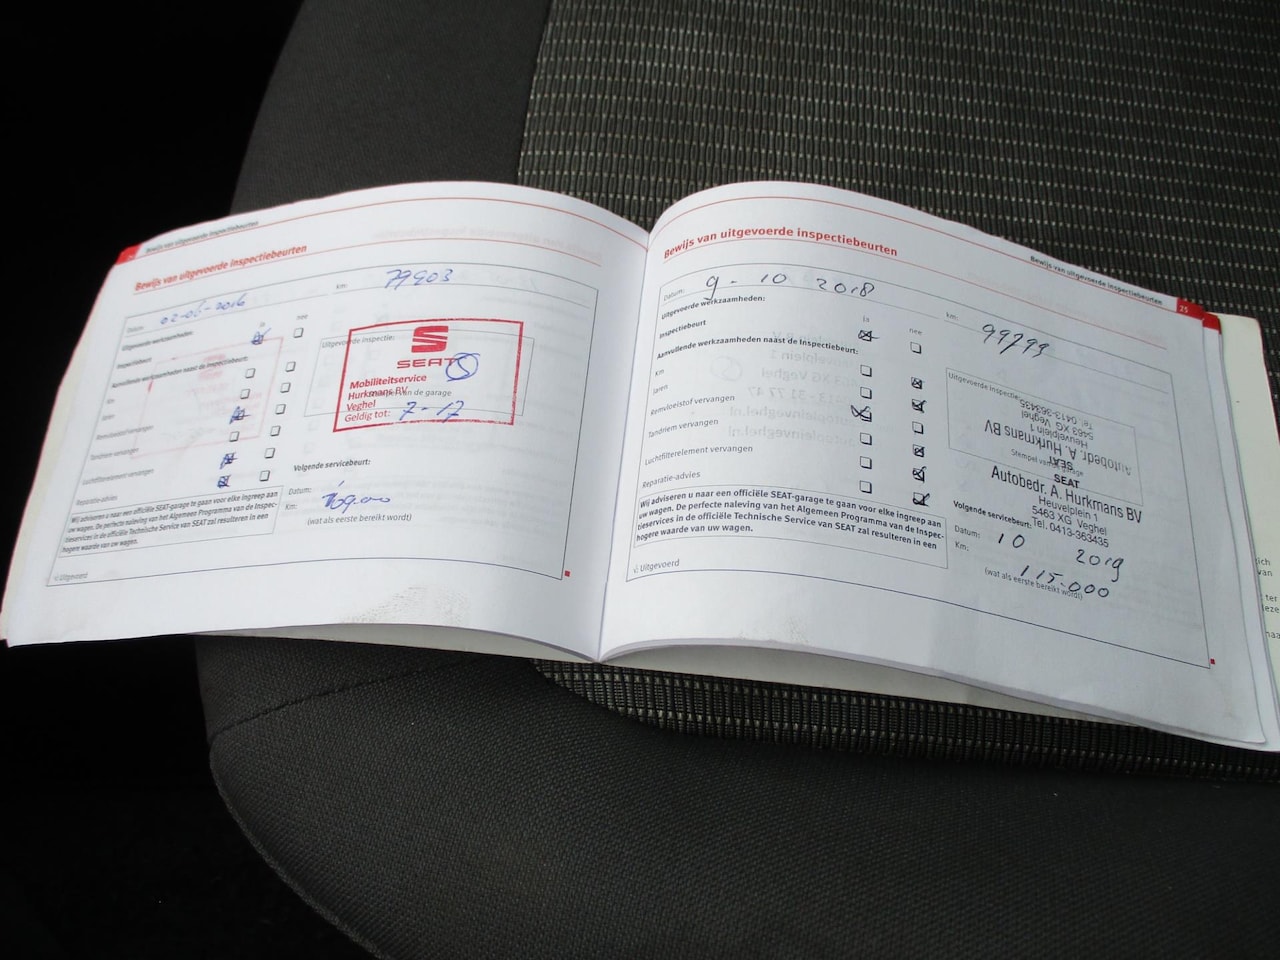 Bewijs van uitgevoerde inspectiebeurten
Bewijs van uitgevoerde inspectiebeurten
Datum: 02-06-2016
km: 79903
Uitgevoerde werkzaamheden: ja nee
Inspectiebeurt
Aanvullende werkzaamheden naast de Inspectiebeurt:
Km
Jaren
Remvloeistof vervangen
Tandriem vervangen
Luchtfilterelement vervangen
Reparatie-advies
Uitgevoerde inspectie:
SEAT
Mobiliteitservice
Hurkmans BV
Veghel
Geldig tot: 7-17
Stempel van de garage
Volgende servicebeurt:
Datum:
Km: 109.000
(wat als eerste bereikt wordt)
Wij adviseren u naar een officiële SEAT-garage te gaan voor elke ingreep aan
uw wagen. De perfecte naleving van het Algemeen Programma van de Inspec-
tieservices in de officiële Technische Service van SEAT zal resulteren in een
hogere waarde van uw wagen.
√: Uitgevoerd
Bewijs van uitgevoerde inspectiebeurten
25
Bewijs van uitgevoerde inspectiebeurten
Datum: 9-10 2018
km: 99793
Uitgevoerde werkzaamheden: ja nee
Inspectiebeurt
Aanvullende werkzaamheden naast de Inspectiebeurt:
Km
Jaren
Remvloeistof vervangen
Tandriem vervangen
Luchtfilterelement vervangen
Reparatie-advies
Uitgevoerde inspectie:
SEAT
Autobedr. A. Hurkmans BV
Heuvelplein 1
5463 XG Veghel
Tel. 0413-363435
Stempel van de garage
SEAT
Autobedr. A. Hurkmans BV
Heuvelplein 1
5463 XG Veghel
Tel. 0413-363435
Volgende servicebeurt:
Datum: 10 2019
Km: 115.000
(wat als eerste bereikt wordt)
Wij adviseren u naar een officiële SEAT-garage te gaan voor elke ingreep aan
uw wagen. De perfecte naleving van het Algemeen Programma van de Inspec-
tieservices in de officiële Technische Service van SEAT zal resulteren in een
hogere waarde van uw wagen.
√: Uitgevoerd